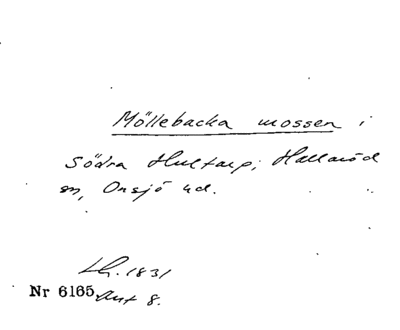 Möllebacka mossen i
Södra Hultarp, Hallaröd
sn, Onsjö hd.
Lh. 1831
Nr 6165 Ant 8.